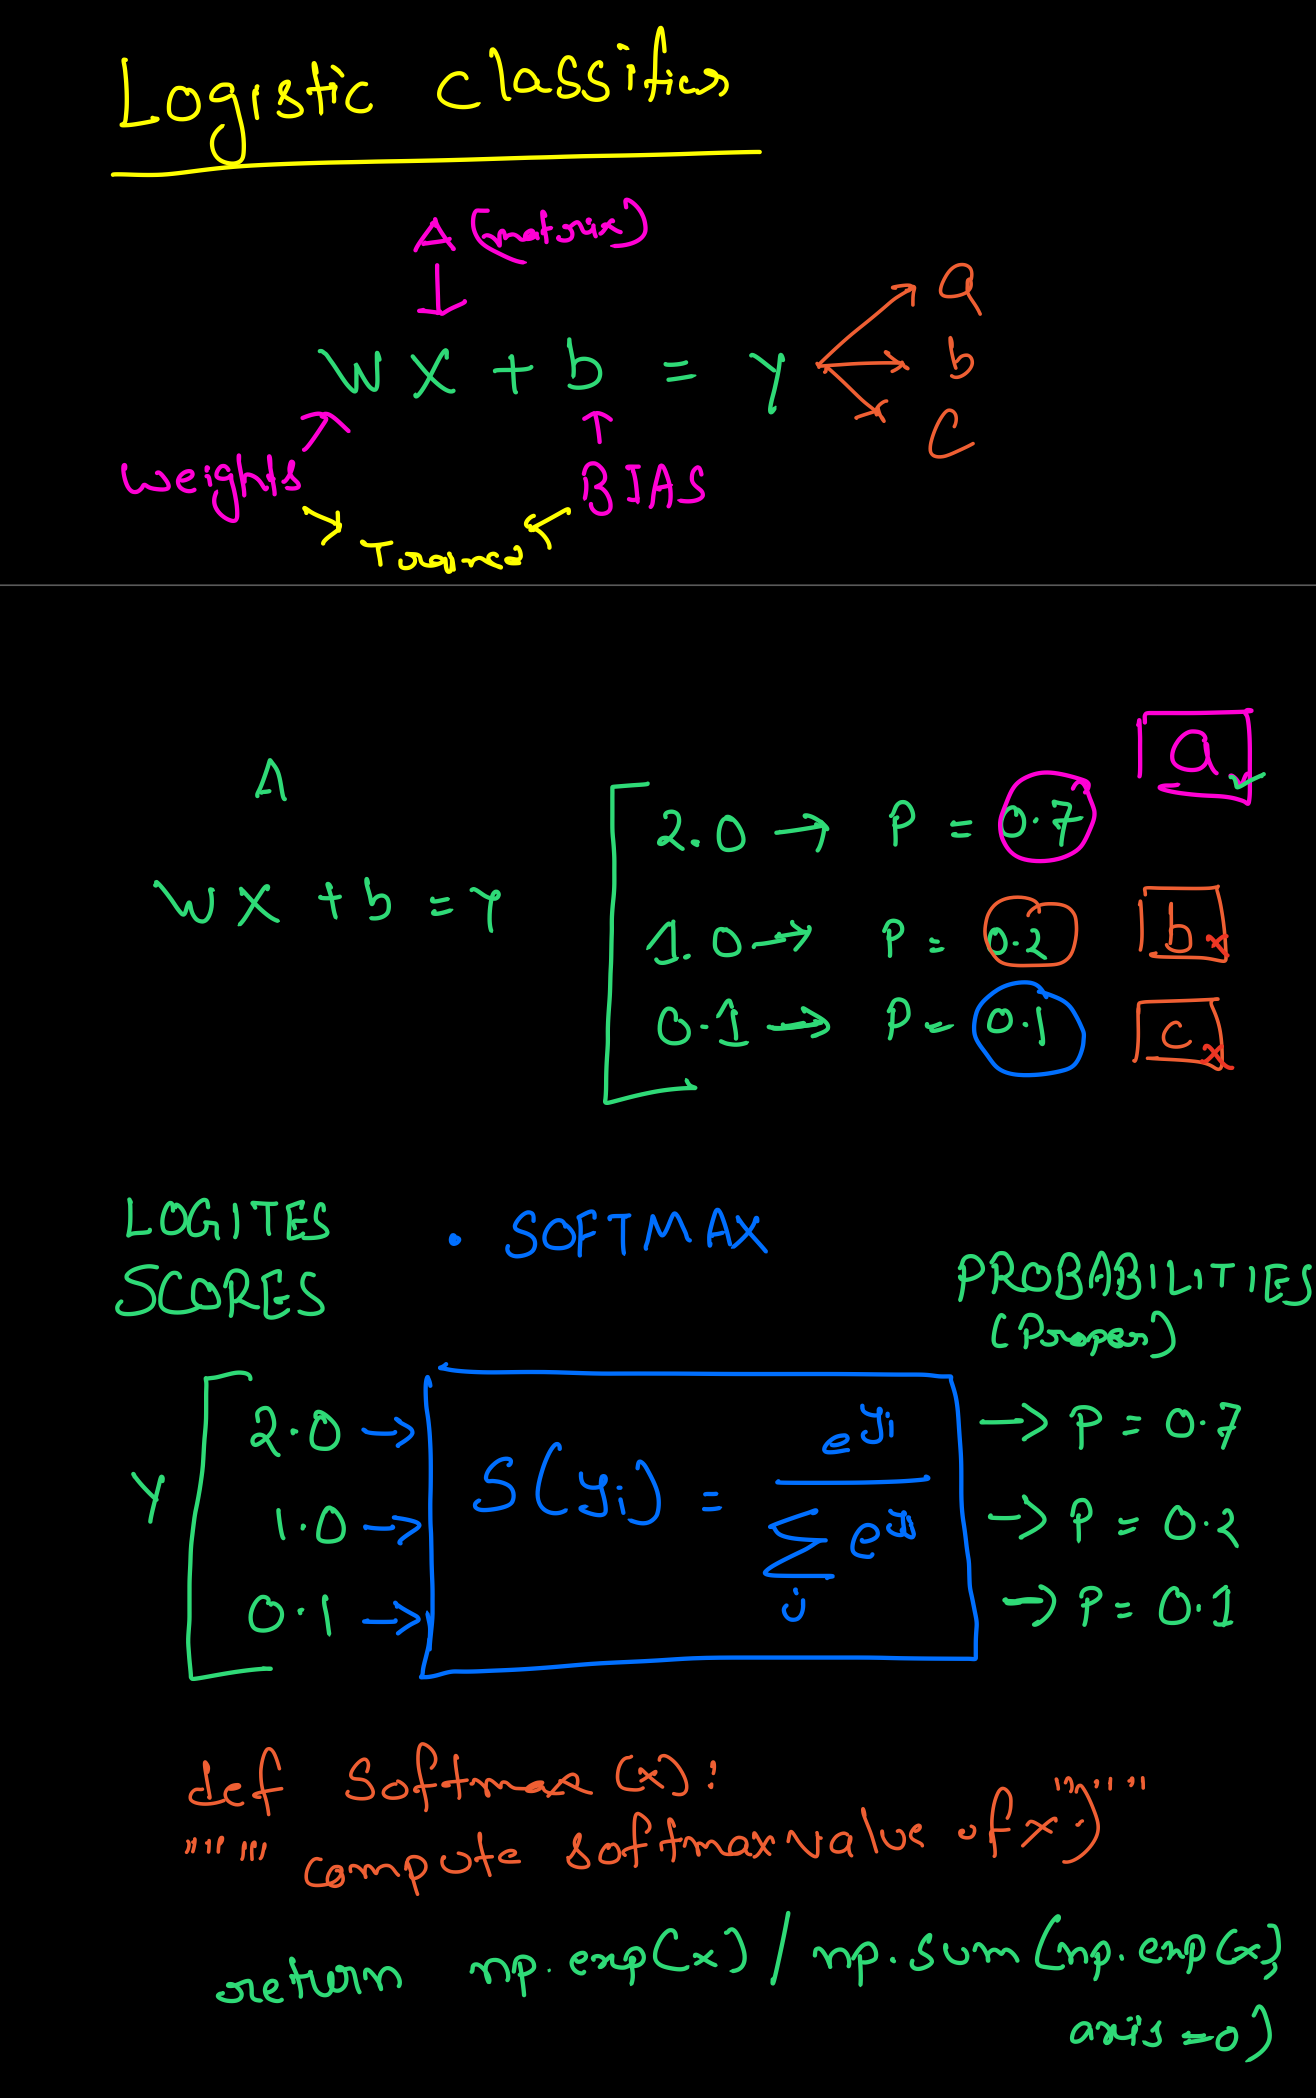 Logistic classifier
A (matrix)
WX + b = y
a
b
c
Weights
BIAS
Trained
A
WX + b = Y
2.0 → P = 0.7 a
1.0 → P = 0.2 b x
0.1 → P = 0.1 c x
LOGITES
SCORES
. SOFTMAX
PROBABILITIES
(Proper)
Y
2.0 →
1.0 →
0.1 →
S(yi) = e^yi / Σj e^yj
→ P = 0.7
→ P = 0.2
→ P = 0.1
def Softmax (x):
""" compute softmax value of x.) """
return np.exp(x) / np.sum(np.exp(x),
axis=0)